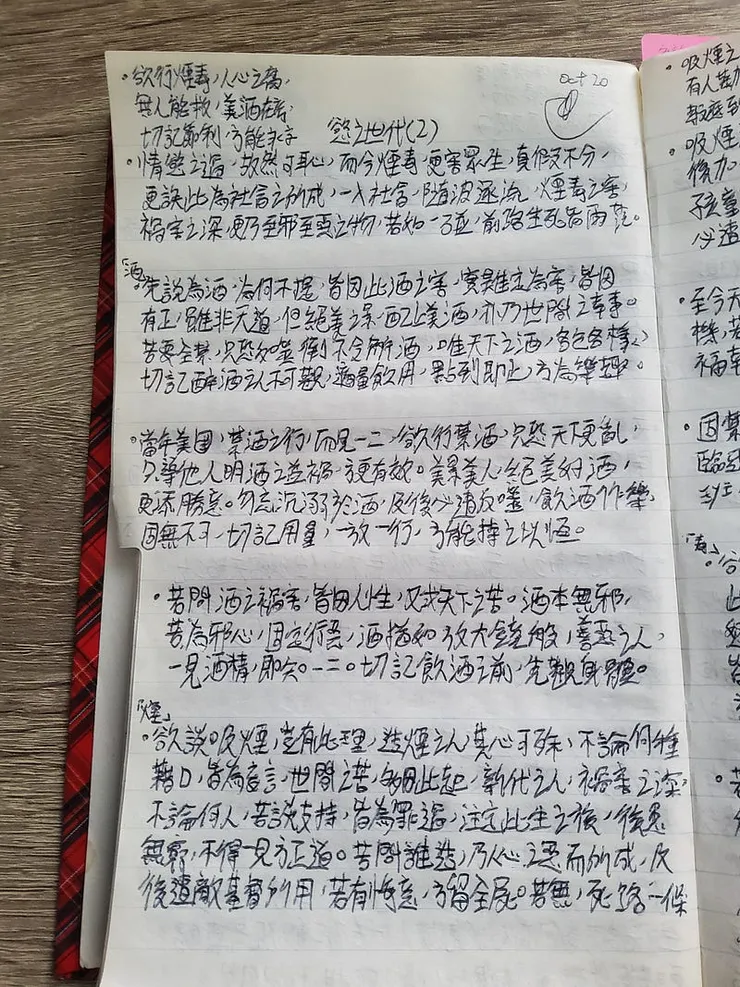 。欲行煙毒,人心之腐,
無人能救,美酒在旁,
切記節制,方能永存
Oct 20
慾之世代(2)
。情慾之過,故然可恥,而今煙毒,更害眾生,真假不分,
更誤此為社會之所成,一入社會,隨波逐流,煙毒之害,
禍害之深,更乃至邪至惡之物,若知一二,前路生死皆兩
「酒」
先說為酒,為何不提,皆因此酒之害,實難立為害,皆因
有正,雖非无道,但絕美之深,配上美酒,亦乃世間之幸事。
若要全禁,只恐反噬,倒不令解酒,唯天下之酒,各色各樣,
切記醉酒之人不可觀,適量飲用,點到即止,方為樂趣。
。當年美國,禁酒之行,而見一二,欲行禁酒,只恐天更亂,
只導他人明酒之益禍,方更有效。美景美人,絕美對酒,
更添勝意。勿忘沉溺於酒,及後必遭反噬,飲酒作樂,
固無不可,切記用量,一放一行,方能持之以恆。
。若問酒之禍害,皆因人性,又或天下之苦。酒本無邪,
若為邪心,固定行惡,酒猶如放大鏡般,善惡之人,
一見酒精,即知一二。切記飲酒之前,先觀身體。
「煙」
。欲說吸煙,豈有此理,造煙之人,其心可殊,不論何種
藉口,皆為妄言,世間之苦,每因此起,新代之人,禍害之深,
不論何人,若說支持,皆為罪過,注定此生之後,後患
無窮,不得一見方正道。若問誰造,乃人心之惡而所成,及
後遭敵基督所用,若有悔意,方留全屍。若無,死路一條
吸煙之
有人
吸煙
後加
孩童
必遭
至今天
機,若
福
因禁
臨
「毒」